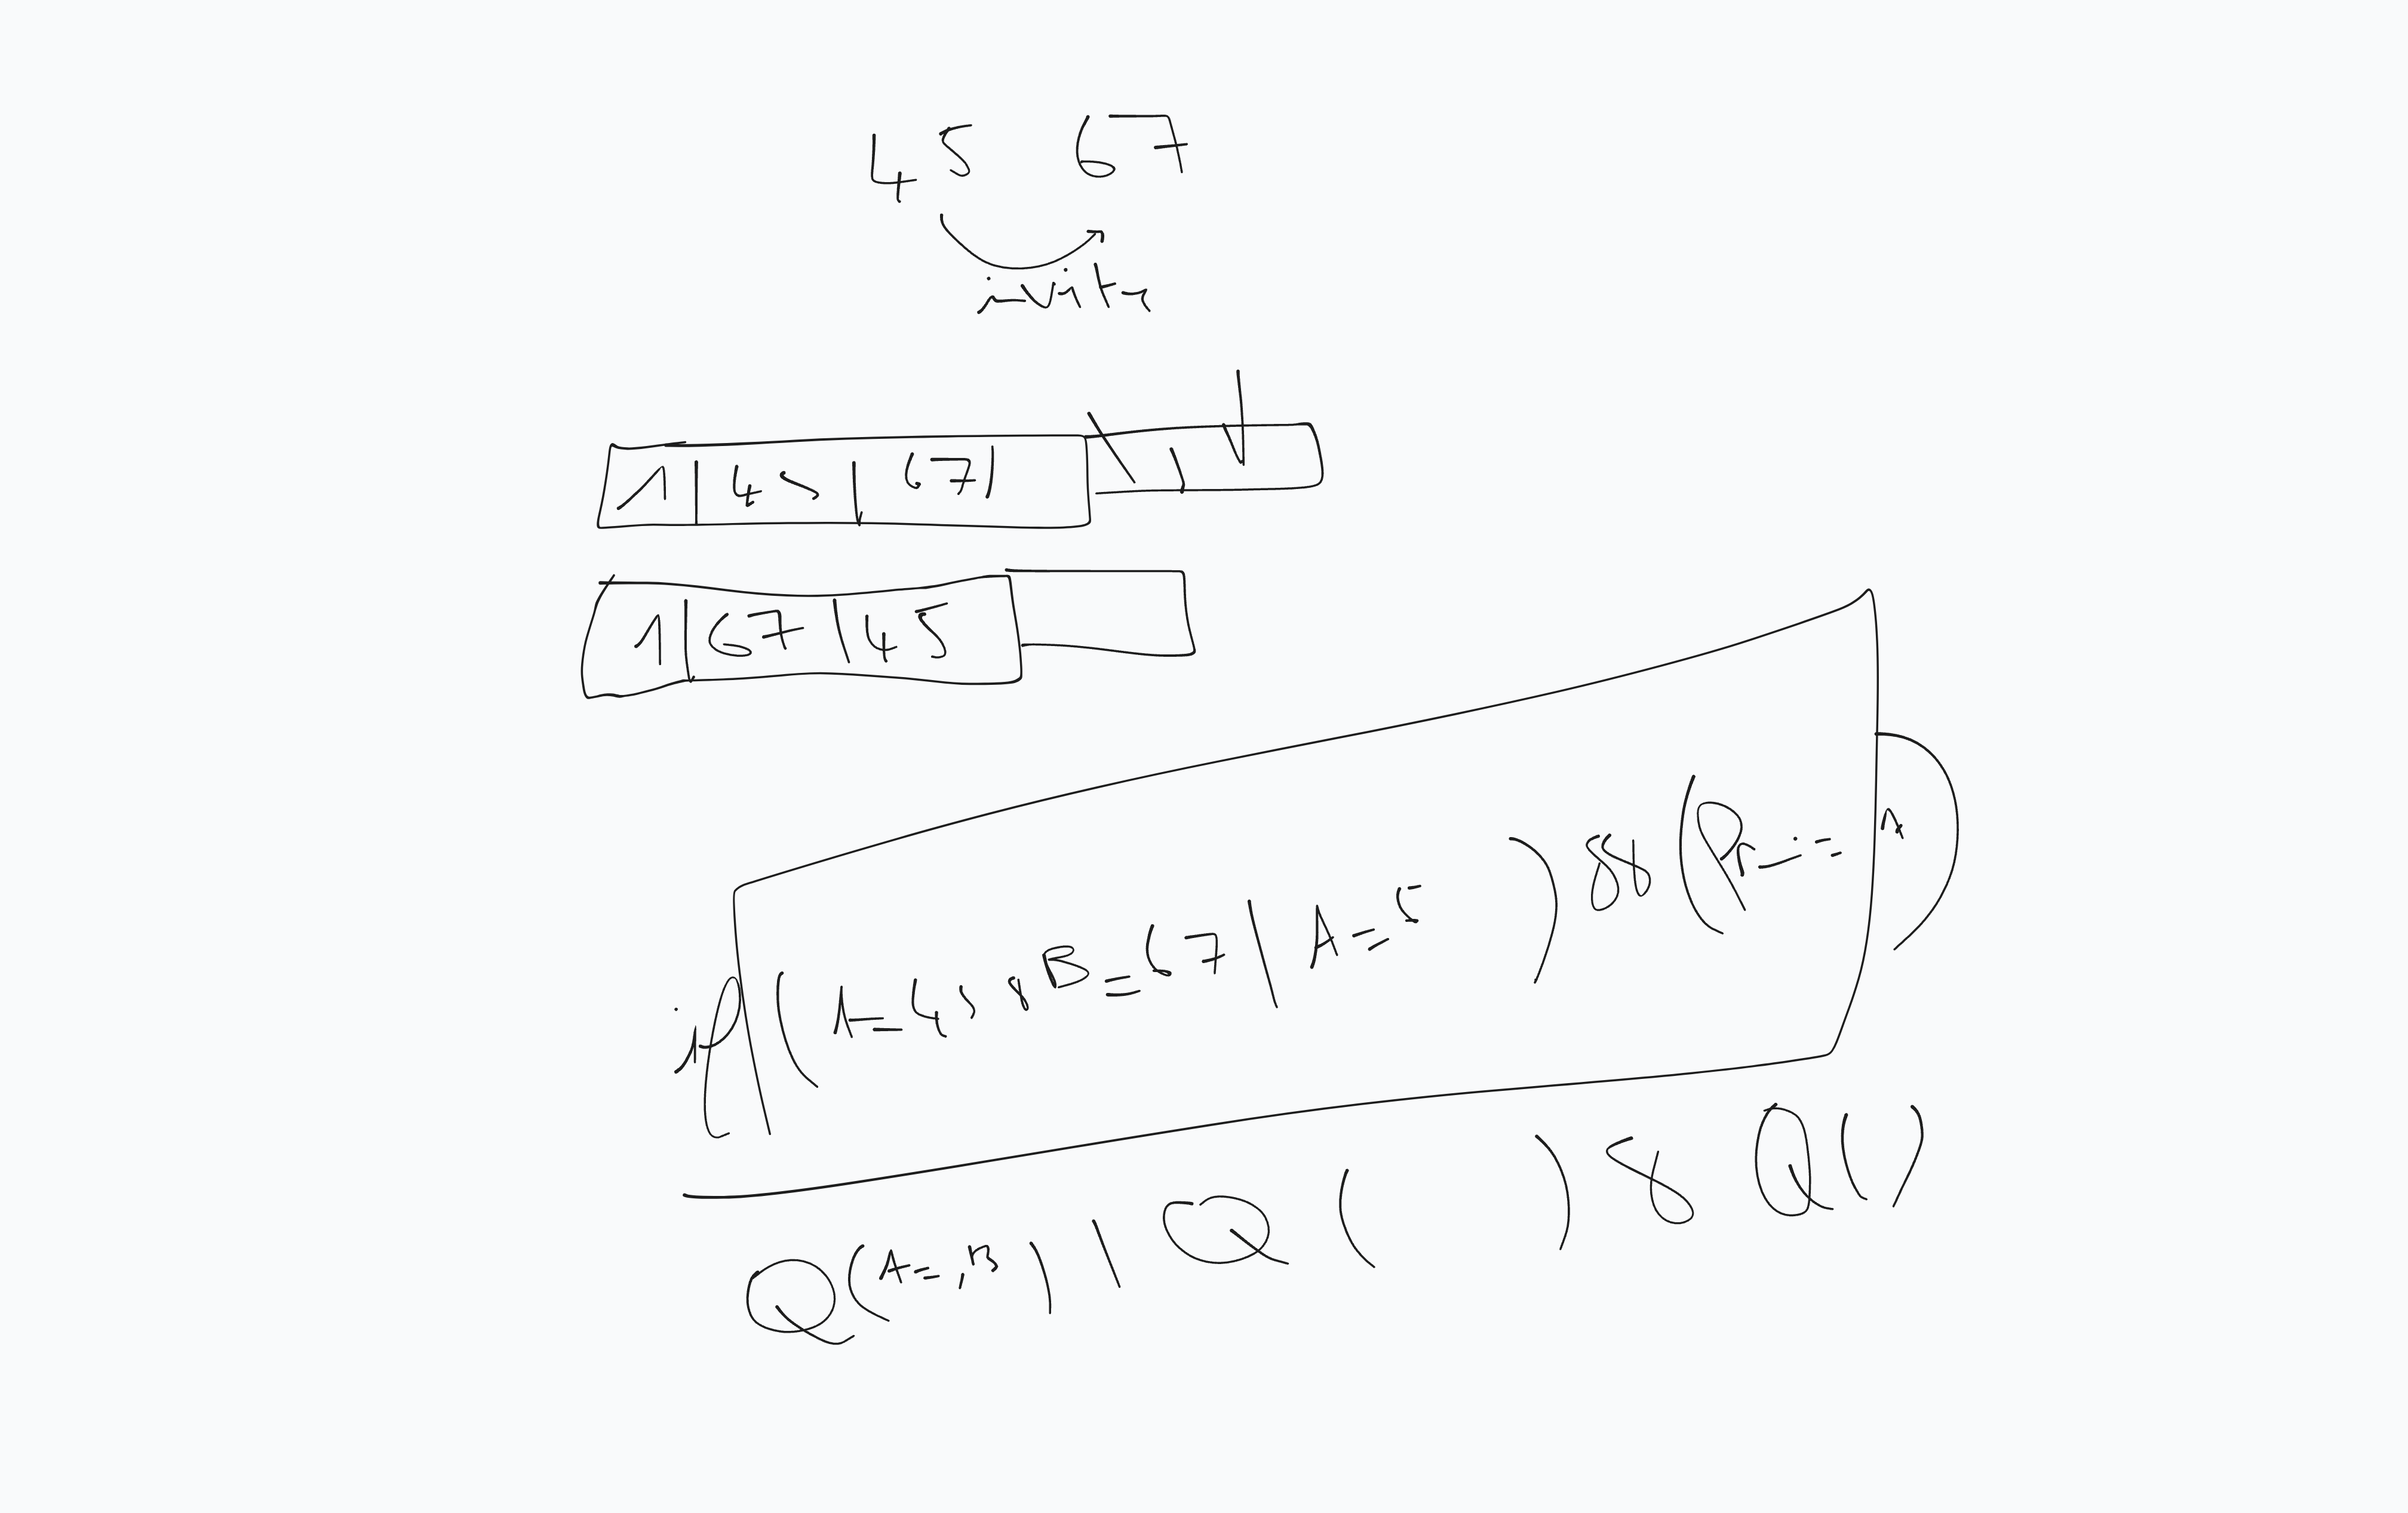 45 67
invite
1 | 45 | 67 |
1 | 67 | 45
if ( ( A = 45 & B = 67 | A = 5 ) && (
Q ( A = , B ) | Q ( ) & Q ( )